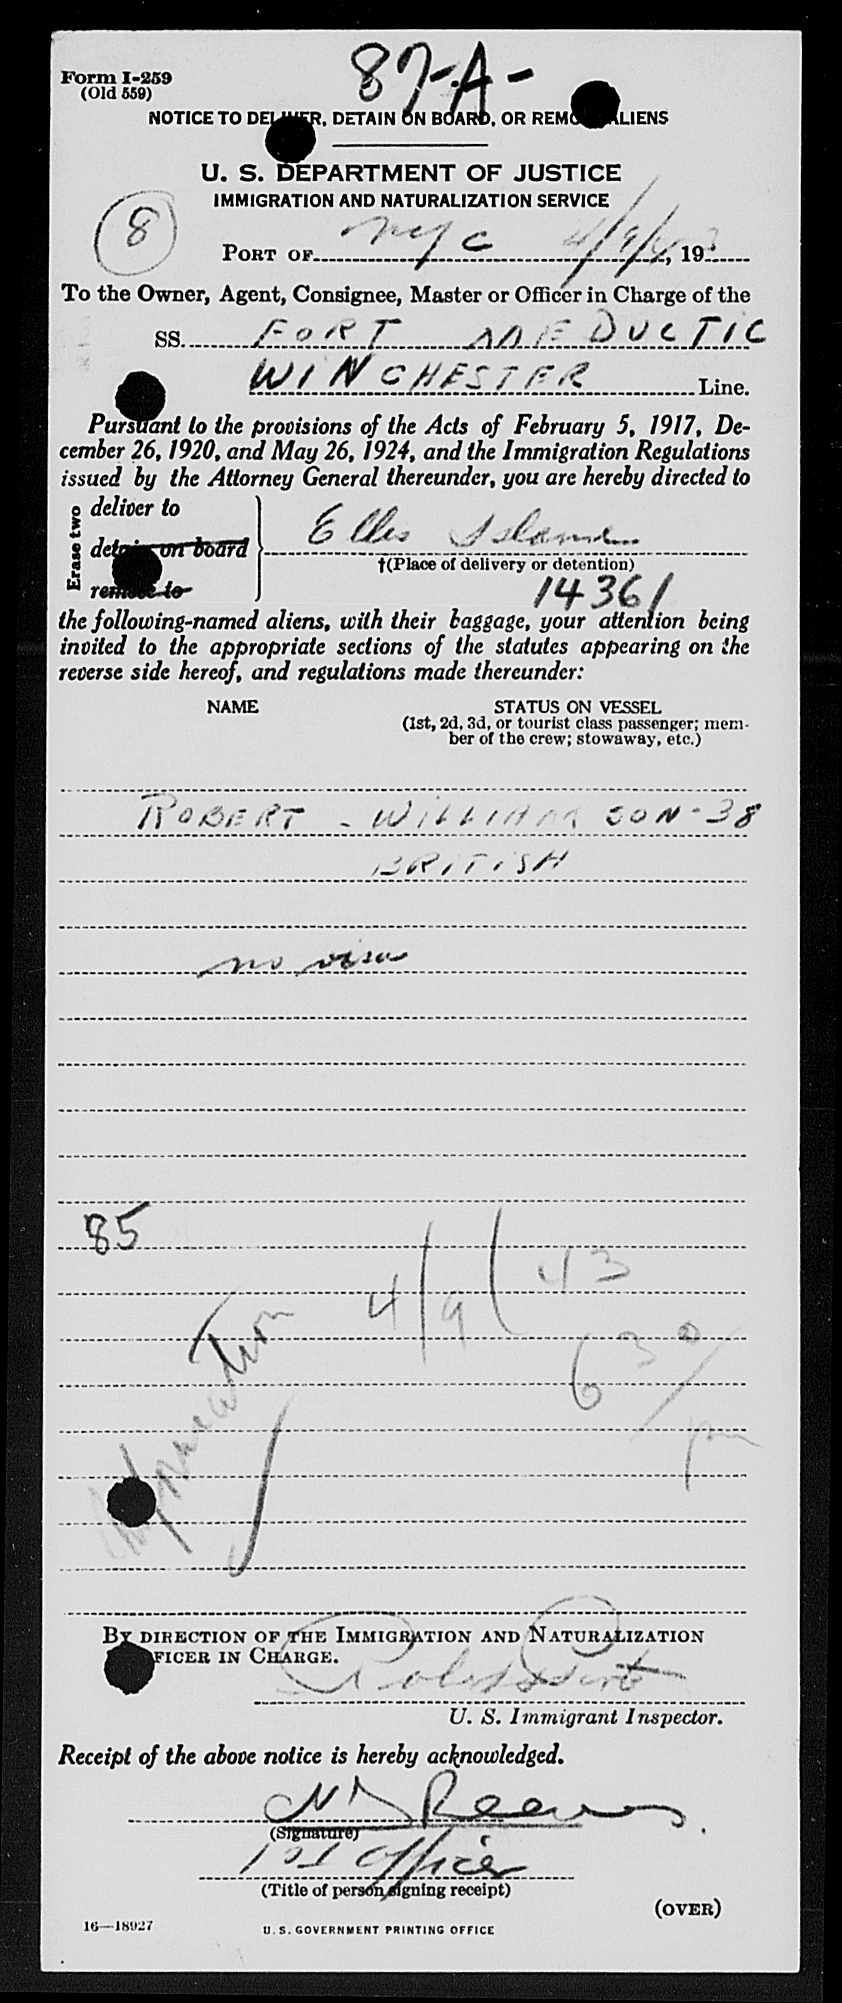 87-A-
Form I-259
(Old 559)
NOTICE TO DELIVER, DETAIN ON BOARD, OR REMOVE ALIENS
U. S. DEPARTMENT OF JUSTICE
IMMIGRATION AND NATURALIZATION SERVICE
8
PORT OF NYC 4/9/43, 19
To the Owner, Agent, Consignee, Master or Officer in Charge of the
SS. FORT MEDUCTIC
WINCHESTER Line.
Pursuant to the provisions of the Acts of February 5, 1917, De-
cember 26, 1920, and May 26, 1924, and the Immigration Regulations
issued by the Attorney General thereunder, you are hereby directed to
Erase two
deliver to
detain on board
remove to
Ellis Island
†(Place of delivery or detention)
14361
the following-named aliens, with their baggage, your attention being
invited to the appropriate sections of the statutes appearing on the
reverse side hereof, and regulations made thereunder:
NAME STATUS ON VESSEL
(1st, 2d, 3d, or tourist class passenger; mem-
ber of the crew; stowaway, etc.)
ROBERT - WILLIAMSON - 38
BRITISH
no visa
85
4/9/43
630/
pm
BY DIRECTION OF THE IMMIGRATION AND NATURALIZATION
OFFICER IN CHARGE.
U. S. Immigrant Inspector.
Receipt of the above notice is hereby acknowledged.
Reeves.
(Signature)
1st Officer
(Title of person signing receipt)
(OVER)
16—18927
U. S. GOVERNMENT PRINTING OFFICE